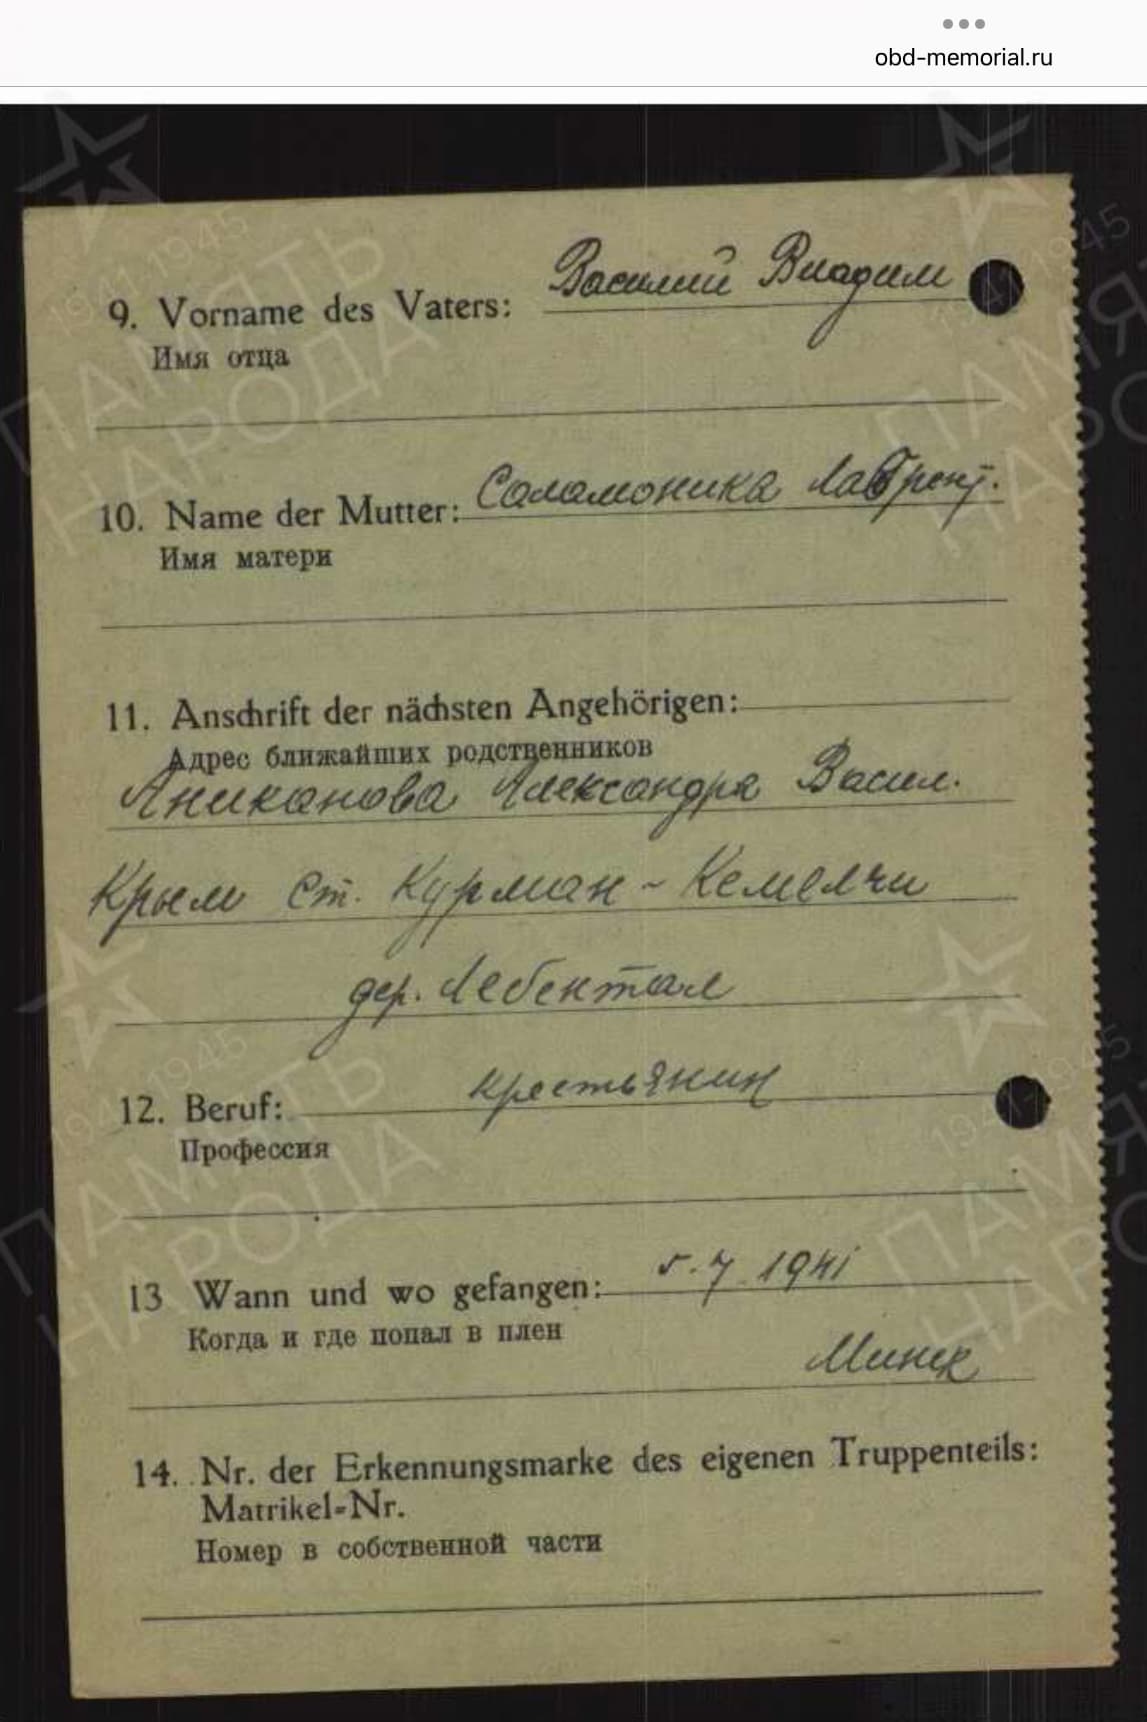 obd-memorial.ru
Василий Владим
9. Vorname des Vaters:
Имя отца
Саламоника Лаврент.
10. Name der Mutter:
Имя матери
11. Anschrift der nächsten Angehörigen:
Адрес ближайших родственников
Аниканова Александра Васил.
Крым ст. Курман-Кемелчи
дер. Лебентал
12. Beruf: крестьянин
Профессия
13 Wann und wo gefangen: 5.7.1941
Когда и где попал в плен
Минск
14. Nr. der Erkennungsmarke des eigenen Truppenteils:
Matrikel-Nr.
Номер в собственной части
1941-1945
ПАМЯТЬ
НАРОДА